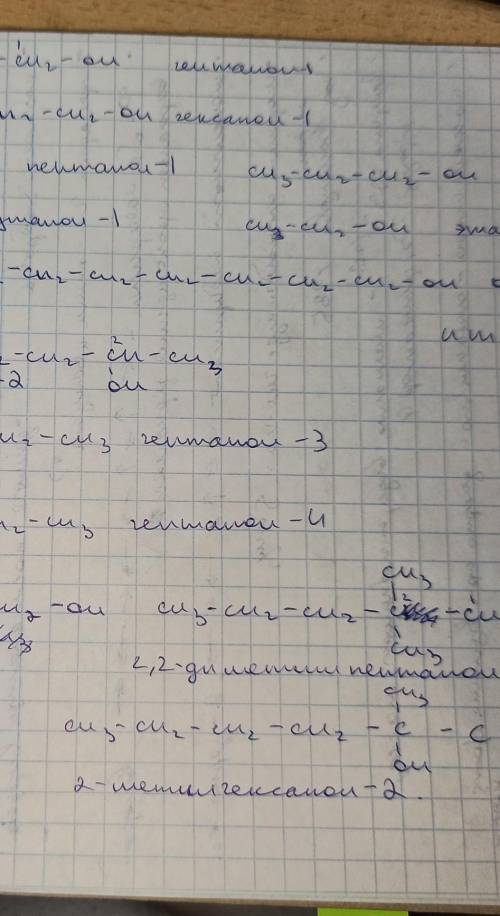 1
-CH₂-OH гептанол-1
-CH₂-OH гексанол-1
пентанол-1 CH₃-CH₂-CH₂-OH
-1 CH₃-CH₂-OH
-CH₂-CH₂-CH₂-CH₂-CH₂-CH₂-OH
2
-CH₂-CH-CH₃
-2 OH
-CH₃ гептанол-3
-CH₃ гептанол-4
CH₃
2
-OH CH₃-CH₂-CH₂-C-
CH₃
2,2-диметилпентанол
CH₃
CH₃-CH₂-CH₂-CH₂-C-C
OH
2-метилгексанол-2.